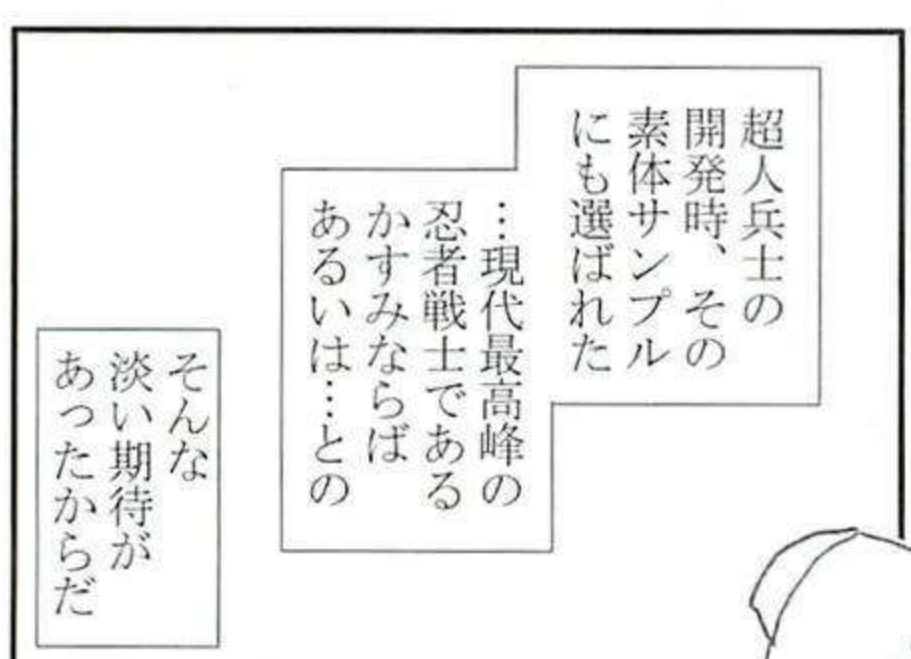 超人兵士の
開発時、その
素体サンプル
にも選ばれた
…現代最高峰の
忍者戦士である
かすみならば
あるいは…との
そんな
淡い期待が
あったからだ